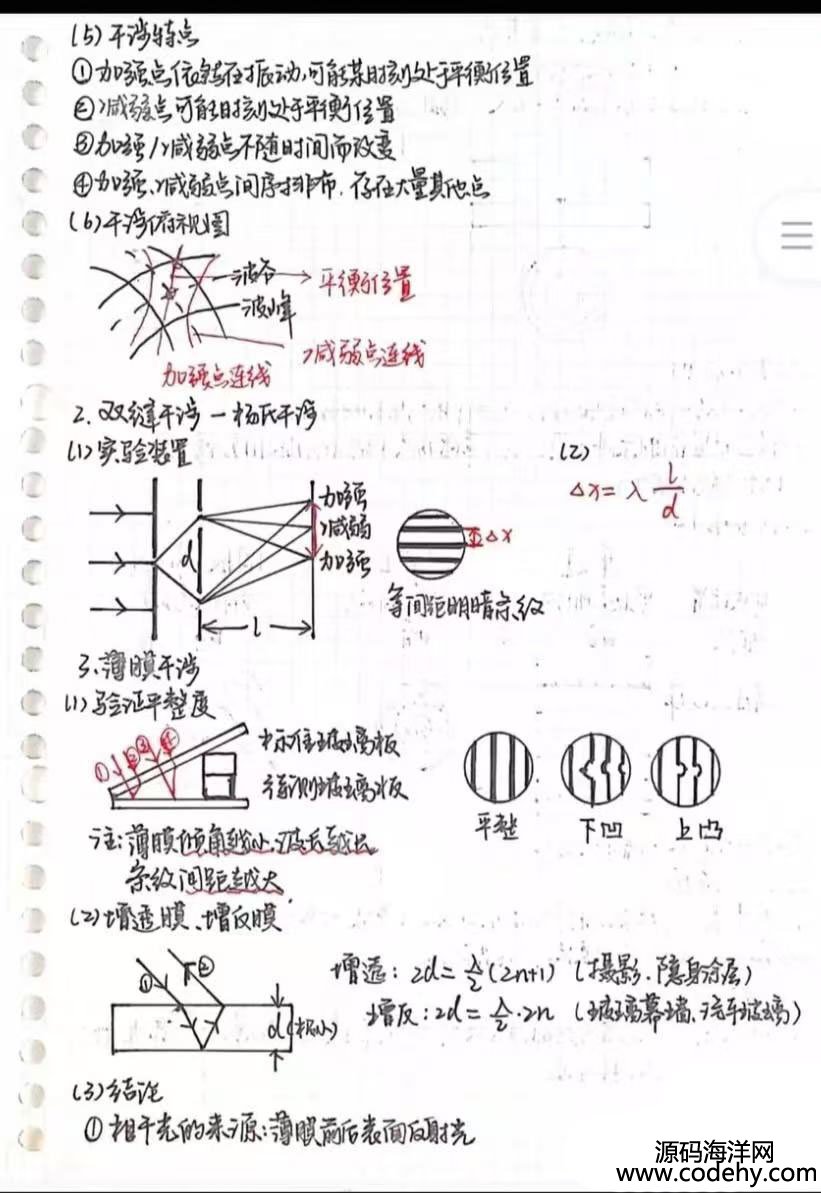 (5)干涉特点
①加强点依然在振动,可能某时刻处于平衡位置
②减弱点可能时刻处于平衡位置
③加强/减弱点不随时间而改变
④加强、减弱点间序排布,存在大量其他点
(6)干涉俯视图
波谷 平衡位置
波峰
减弱点连线
加强点连线
2.双缝干涉—杨氏干涉
(1)实验装置 (2)
Δx=λ l/d
加强
减弱
加强
d
l
Δx
等间距明暗条纹
3.薄膜干涉
(1)验证平整度
①②③④
标准玻璃板
待测玻璃板
平整 下凹 上凸
注:薄膜倾角越小、波长越长
条纹间距越大
(2)增透膜、增反膜
① ②
d(极小)
增透:2d=λ/2(2n+1) (摄影、隐身涂层)
增反:2d=λ/2·2n (玻璃幕墙、汽车玻璃)
(3)结论
①相干光的来源:薄膜前后表面反射光
源码海洋网
www.codehy.com